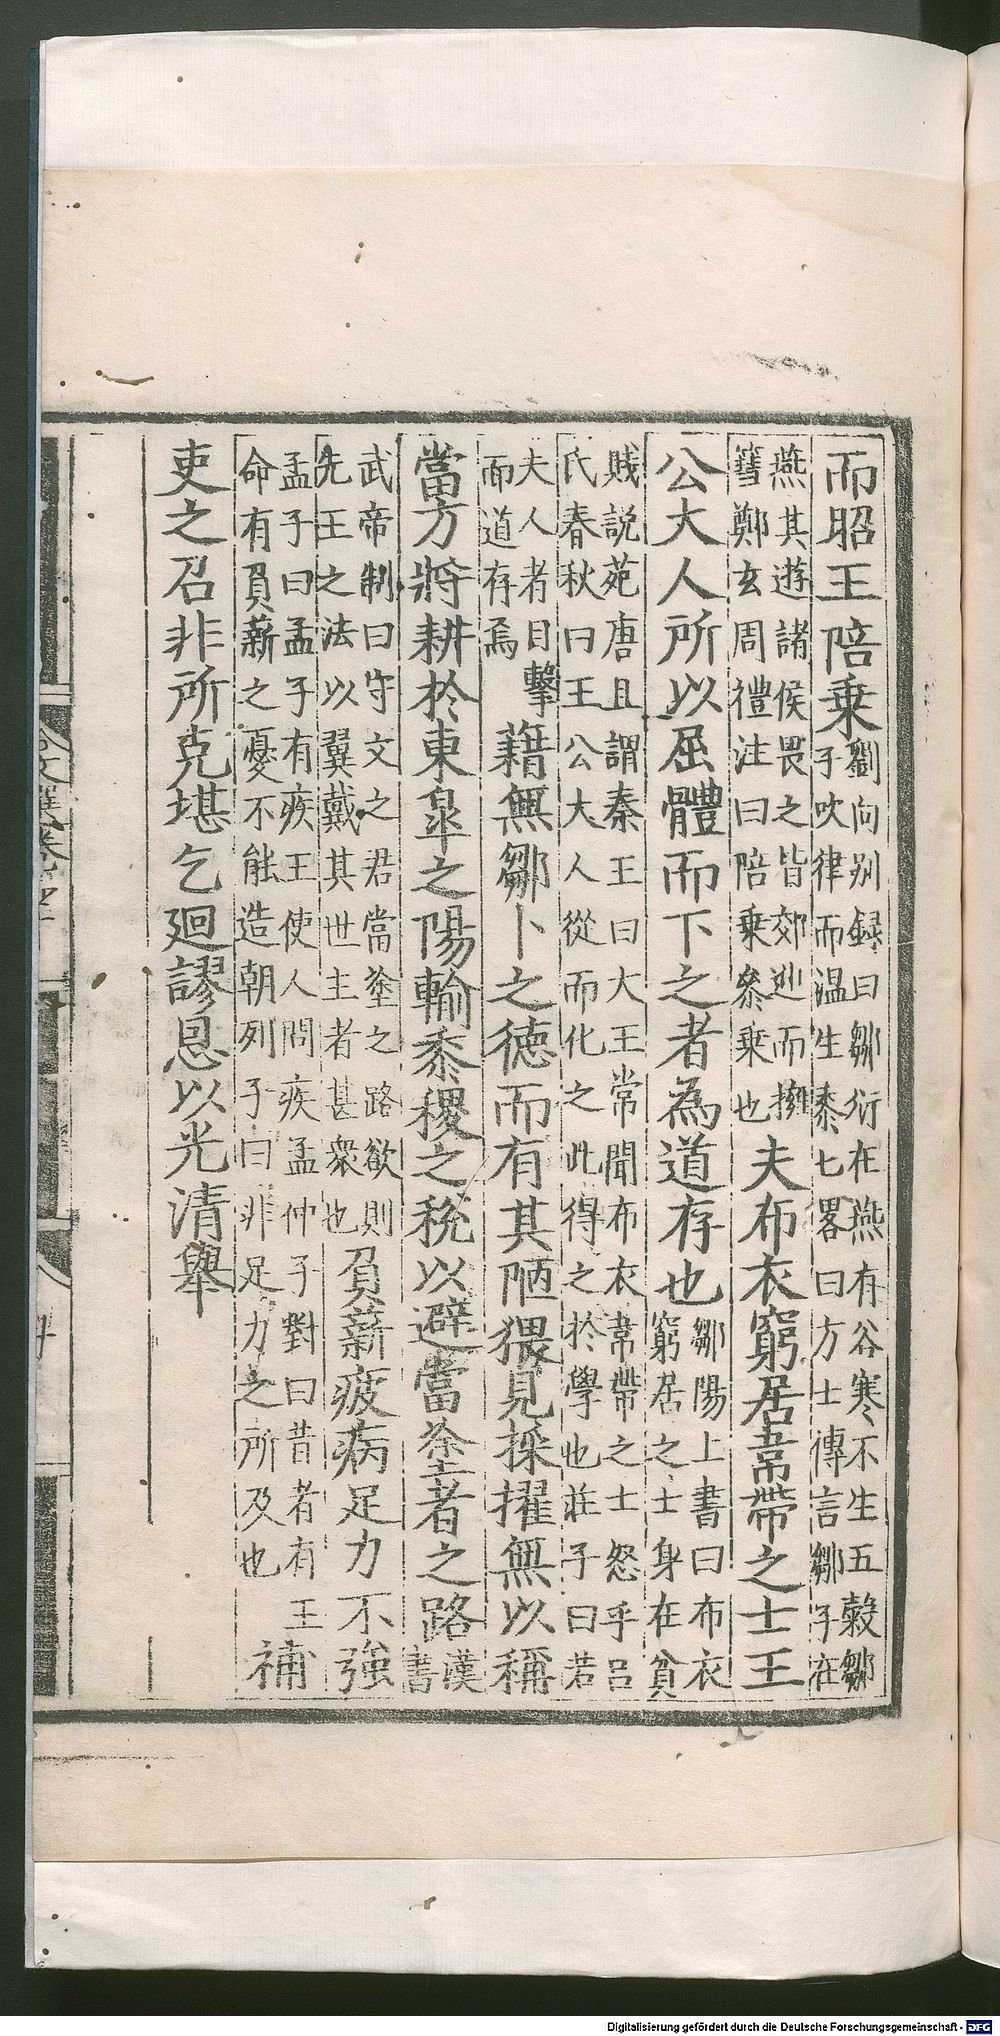 而昭王陪乘
劉向别録曰鄒衍在燕有谷寒不生五穀鄒
子吹律而温生黍七畧曰方士傳言鄒子在
燕其遊諸侯畏之皆郊迎而擁
篲鄭玄周禮注曰陪乘參乘也
夫布衣窮居韋帶之士王
公大人所以屈體而下之者為道存也
鄒陽上書曰布衣
窮居之士身在貧
賤説苑唐且謂秦王曰大王常聞布衣韋帶之士怒乎吕
氏春秋曰王公大人從而化之此得之於學也莊子曰若
夫人者目擊
而道存焉
籍無鄒卜之德而有其陋猥見採擢無以稱
當方將耕於東皐之陽輸黍稷之稅以避當塗者之路
漢
書
武帝制曰守文之君當塗之路欲則
先王之法以翼戴其世主者甚衆也
負薪疲病足力不強
孟子曰孟子有疾王使人問疾孟仲子對曰昔者有王
命有負薪之憂不能造朝列子曰非足力之所及也
補
吏之召非所克堪乞廻謬恩以光清舉
Digitalisierung gefördert durch die Deutsche Forschungsgemeinschaft - DFG